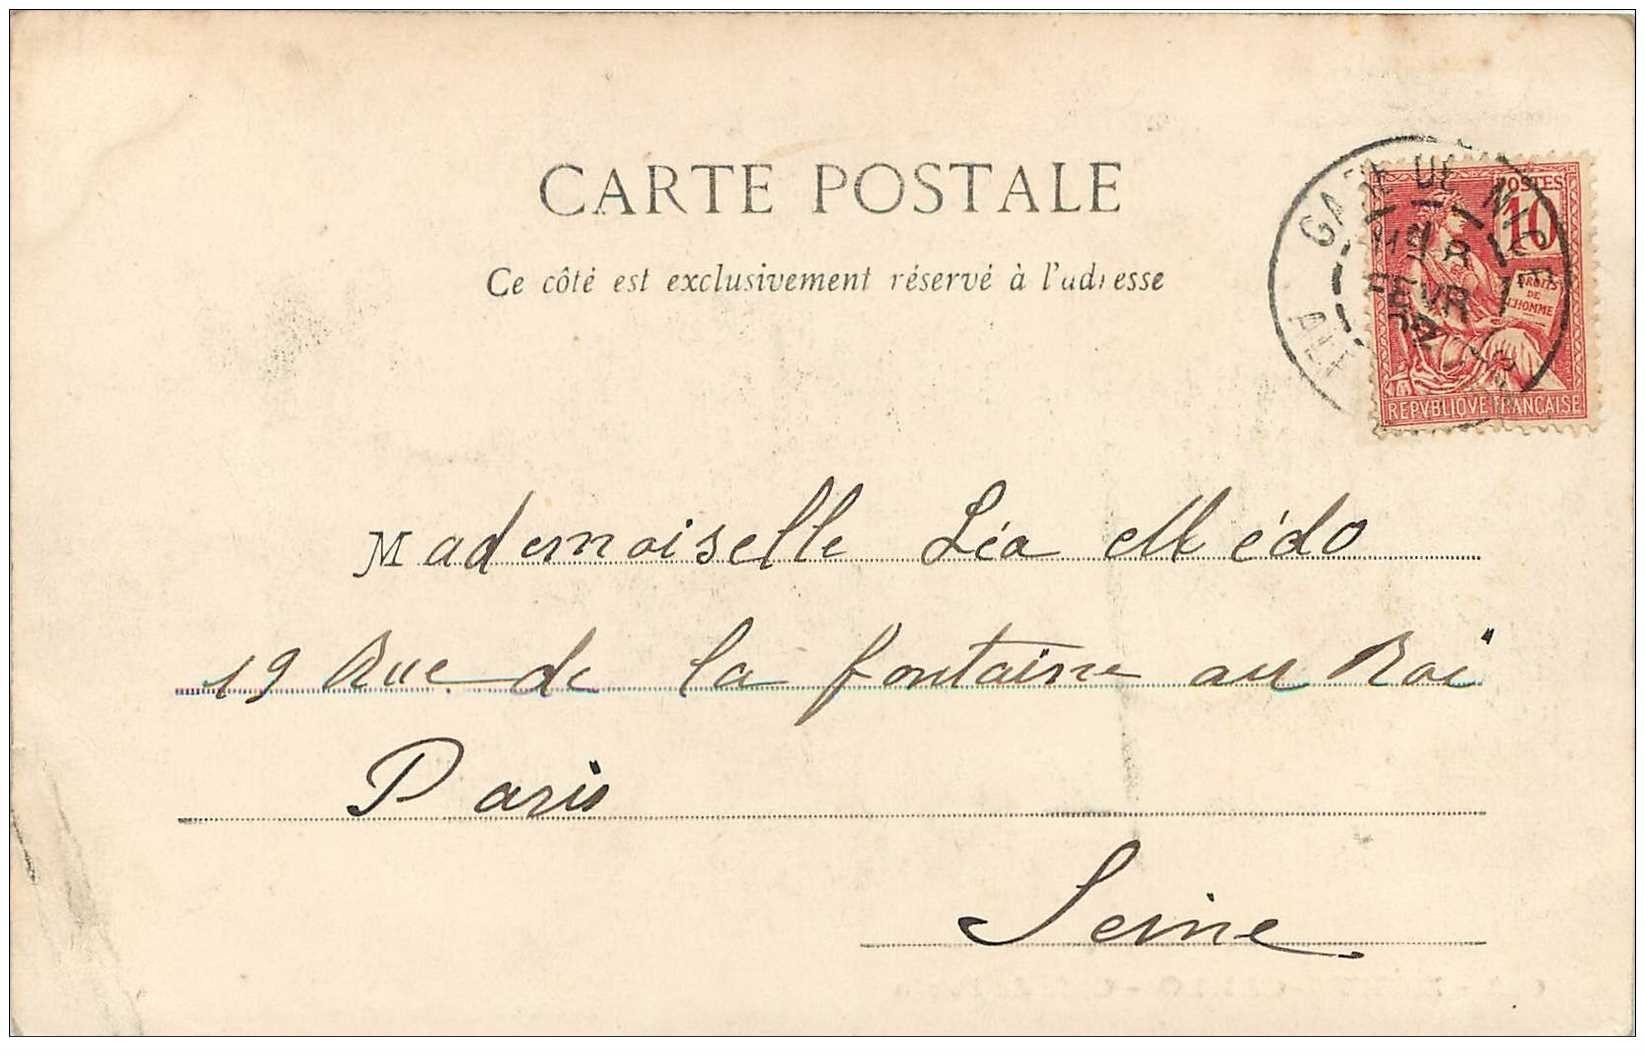 CARTE POSTALE
Ce côté est exclusivement réservé à l'adresse
GARE DE NICE
FEVR
POSTES
10
DROITS
DE
L'HOMME
REPVBLIQVE FRANÇAISE
Mademoiselle Léa Médo
19 Rue de la fontaine au Roi
Paris
Seine